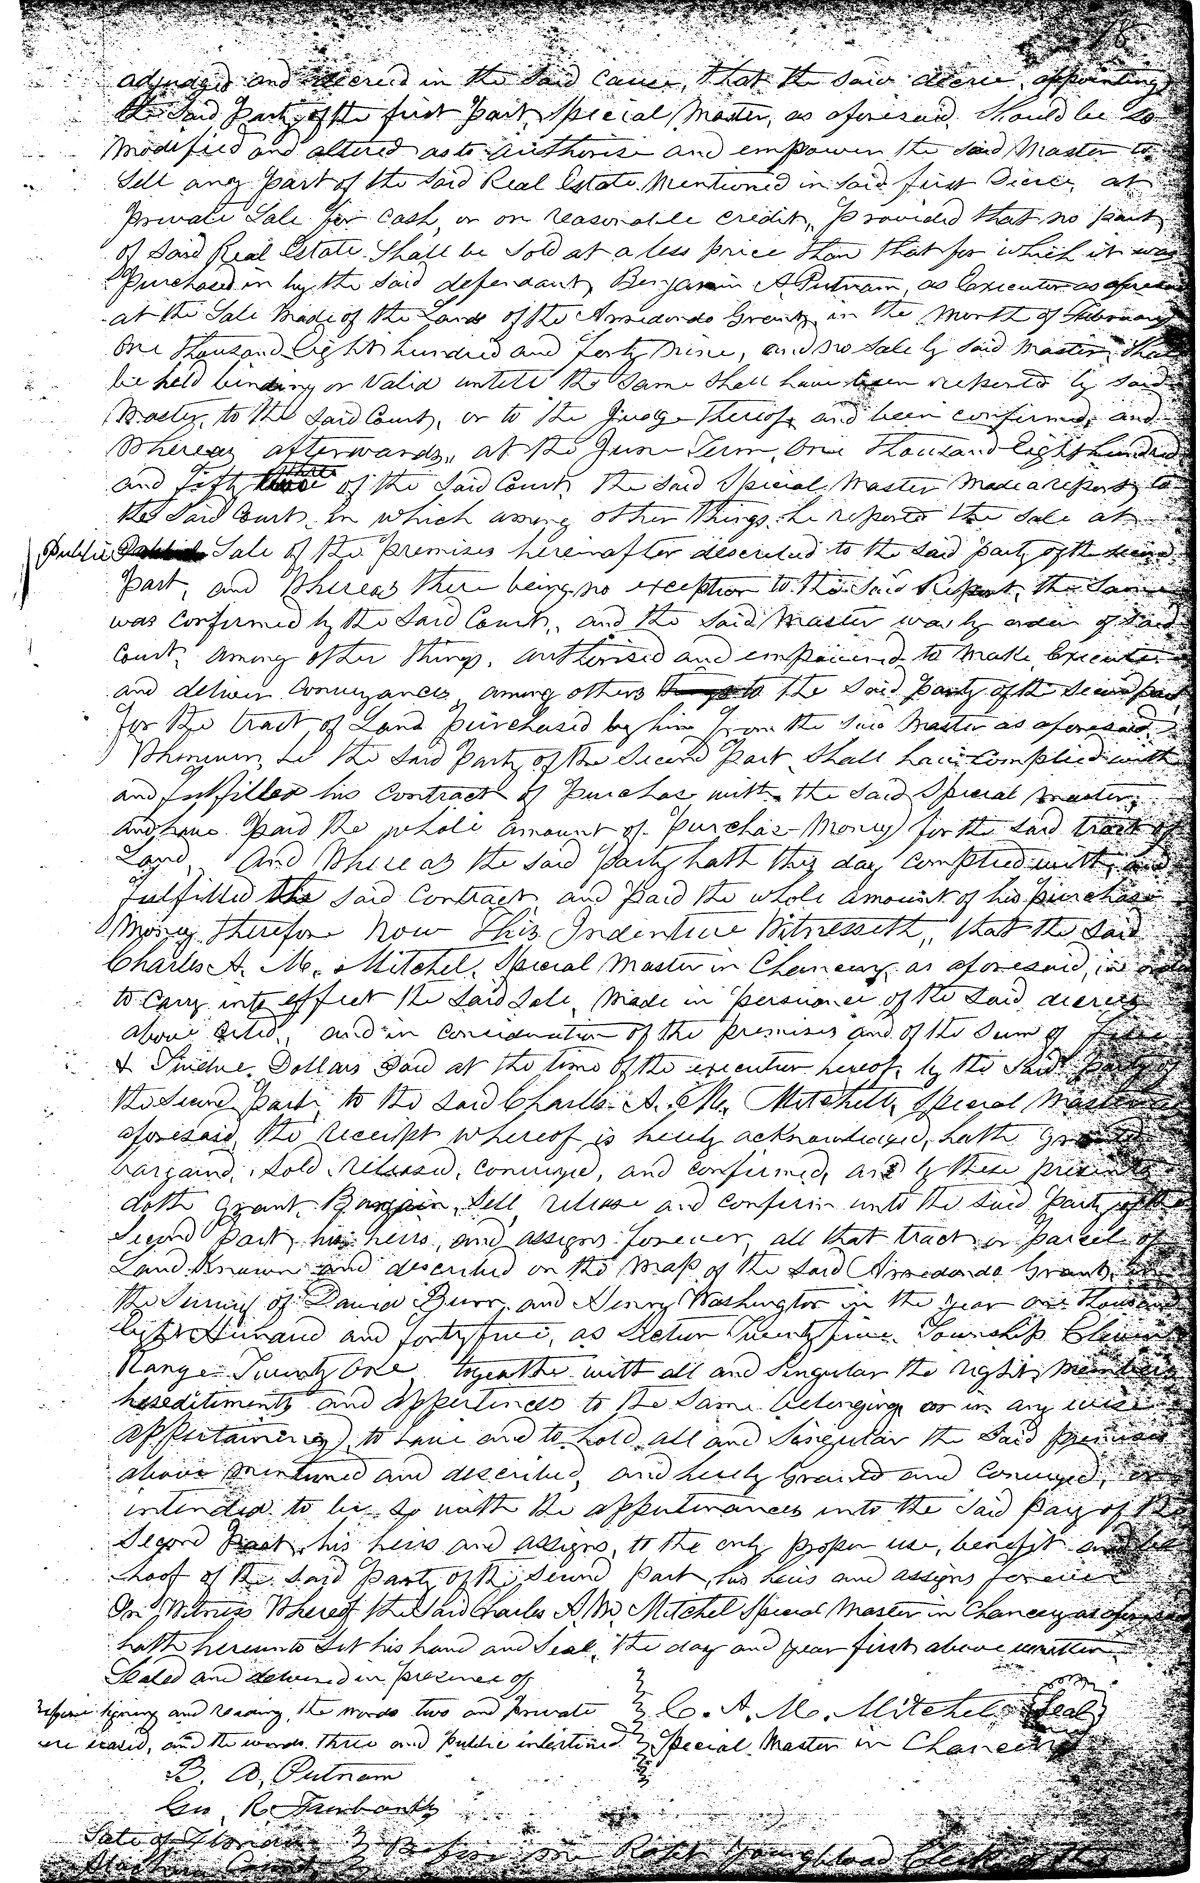 adjudged and decreed in the said cause, that the said decree, appointing
the said Party of the first Part, Special Master, as aforesaid, should be so
Modified and altered as to authorise and empower the said Master to
Sell any part of the said Real Estate Mentioned in said first Decree, at
private Sale for cash, or on reasonable credit, provided that no part
of said Real Estate Shall be Sold at a less price than that for which it was
Purchased in by the said defendant, Benjamin A. Putnam, as Executor as aforesaid
at the Sale Made of the Lands of the Arredondo Grant, in the Month of February
One thousand Eight hundred and forty Nine, and no Sale by said Master, Shall
be held binding or Valid untill the Same Shall have been reported by said
Master, to the Said Court, or to the Judge thereof, and been confirmed, and
Whereas afterwards, at the June Term, One thousand Eight hundred
and fifty three of the Said Court, the said Special Master Made a report to
the Said Court, in which among other things, he reports the Sale at
Public Sale of the premises hereinafter described to the said party of the second
Part, and Whereas there being no exception to the Said Report, the Same
was confirmed by the Said Court, and the Said Master was by order of Said
Court, among other things, authorised and empowered to Make, Execute
and deliver Conveyances, among others to the Said Party of the Second part,
for the tract of Land Purchased by him from the said Master as aforesaid,
Whenever, he the Said Party of the Second Part, Shall have Complied with
and fulfilled his Contract of Purchase with the Said Special Master,
and have Paid the whole amount of Purchase Money for the Said tract of
Land, And Whereas the said party hath this day complied with, and
fulfilled the said Contract, and Paid the whole amount of his purchase
Money therefore Now This Indenture Witnesseth, that the Said
Charles A. M. Mitchel, Special Master in Chancery, as aforesaid, in order
to carry into effect the Said Sale, Made in persuance of the Said decrees
above cited, and in consideration of the premises and of the Sum of
& Twelve Dollars Paid at the time of the execution hereof, by the Said Party of
the Second Part, to the Said Charles A. M. Mitchell, Special Master as
aforesaid, the receipt whereof is hereby acknowledged, hath Granted
bargand, Sold, released, conveyed, and confirmed, and by these presents
doth Grant, Bargain, Sell, release and confirm unto the Said Party of the
Second Part, his heirs, and assigns forever, all that tract or parcel of
Land Known and described on the Map of the Said Arredondo Grant, by
the Survey of David Burr, and Henry Washington in the year one thousand
Eight Hundred and forty five, as Section Twenty five, Township Eleven
Range Twenty One, together with all and Singular the rights members
hereditiments and appertinces to the Same belonging or in any wise
appertaining, to have and to hold all and Singular the Said premises
above mentioned and described, and hereby Granted and Conveyed, or
intended to be, So with the appurtenances unto the Said Pary of the
Second Part, his heirs and assigns, to the only proper use, benefit and be
hoof of the said Party of the Second part, his heirs and assigns forever
In Witness Whereof the Said Charles A M Mitchel Special Master in Chancery as aforesaid
hath hereunto Set his hand and Seal, the day and year first above written
Sealed and delivered in presence of
Before signing and reading, the words two and Private
were erased, and the words three and Public interlined
C. A. M. Mitchel Seal
Special Master in Chancery
B. A. Putnam
Geo. R. Fairbanks
State of Florida
Alachua County
Before me Robt Youngblood Clerk of the